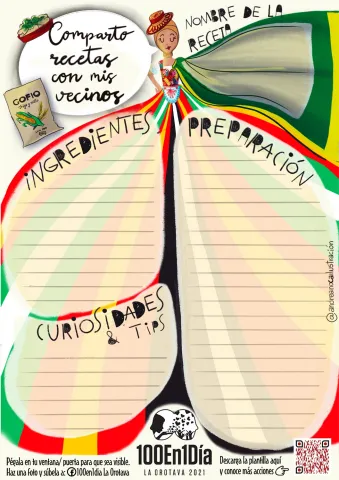 Comparto
recetas
con mis
vecinos
NOMBRE DE LA
RECETA
GOFIO
INGREDIENTES
PREPARACIÓN
CURIOSIDADES
& TIPS
100En1Día
LA OROTAVA 2021
Pégala en tu ventana/ puerta para que sea visible.
Haz una foto y súbela a: 100en1dia La Orotava
Descarga la plantilla aquí
y conoce más acciones